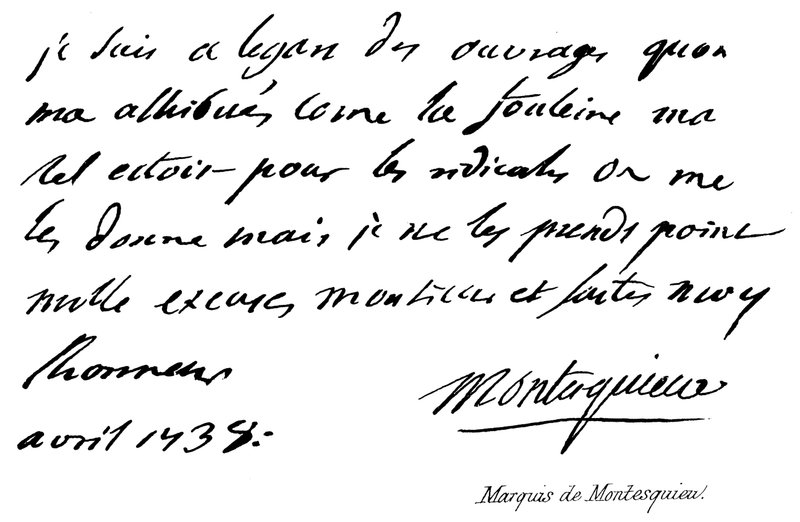 je suis a legard des ouvrages quon
ma attribués come la
estoit pour les ridicules on me
les donne mais je ne les prends point
mille excuses monsieur et faites moy
lhonneur
Montesquieu
avril 1738:
Marquis de Montesquieu.